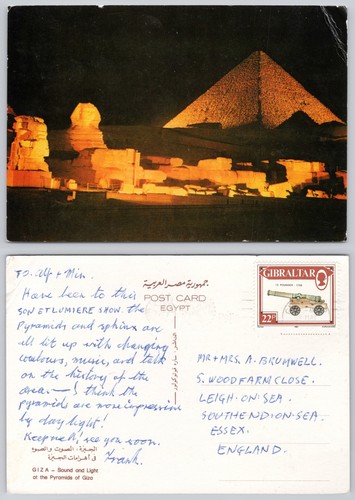 TO. Alf + Min.
Have been to this
SON ET LUMIERE SHOW. The
Pyramids and sphinx are
all lit up with changing
colours, music, and talk
on the history of the
area — I think the
pyramids are more impressive
by daylight!
Keep well, see you soon.
Frank.
جمهورية مصر العربية
POST CARD
EGYPT
GIBRALTAR
22p
MR + MRS. A. BRUMWELL.
5. WOODFARM CLOSE.
LEIGH-ON-SEA.
SOUTHEND-ON-SEA.
ESSEX.
ENGLAND.
الجيزة : الصوت والضوء
في أهرامات الجيزة
GIZA – Sound and Light
at the Pyramids of Giza